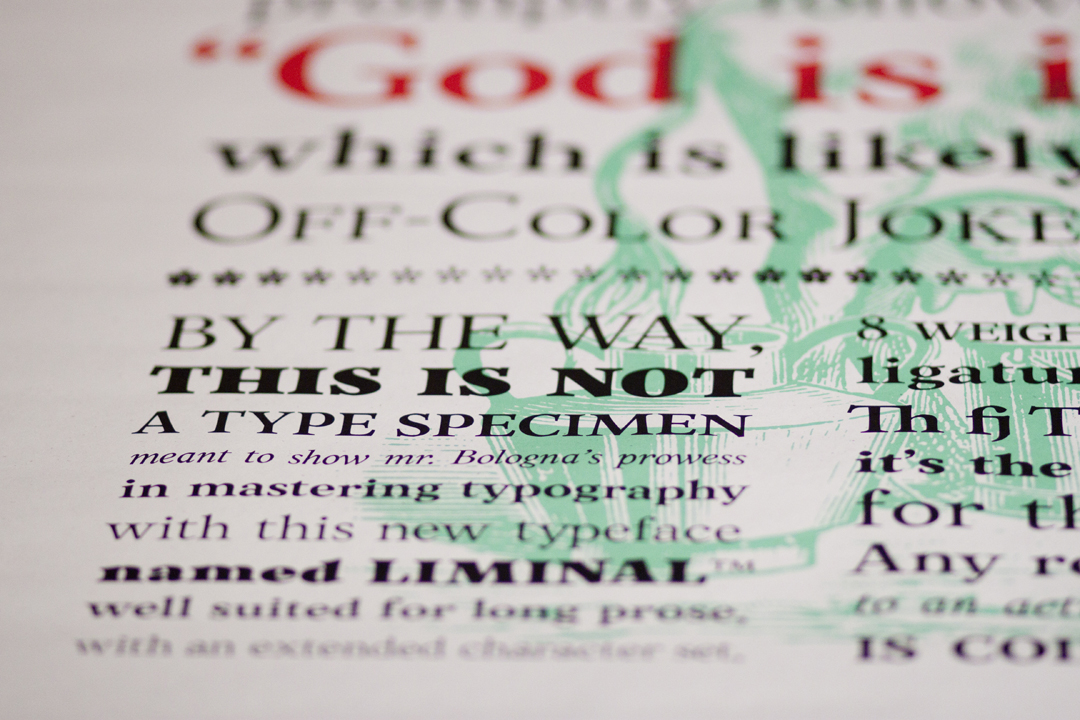 “God is i
which is likely
OFF-COLOR JOKE
BY THE WAY,
THIS IS NOT
A TYPE SPECIMEN
meant to show mr. Bologna's prowess
in mastering typography
with this new typeface
named LIMINAL™
well suited for long prose,
with an extended character set,
8 WEIGH
ligatur
Th fj T
it's the
for th
Any re
to an act
IS CO